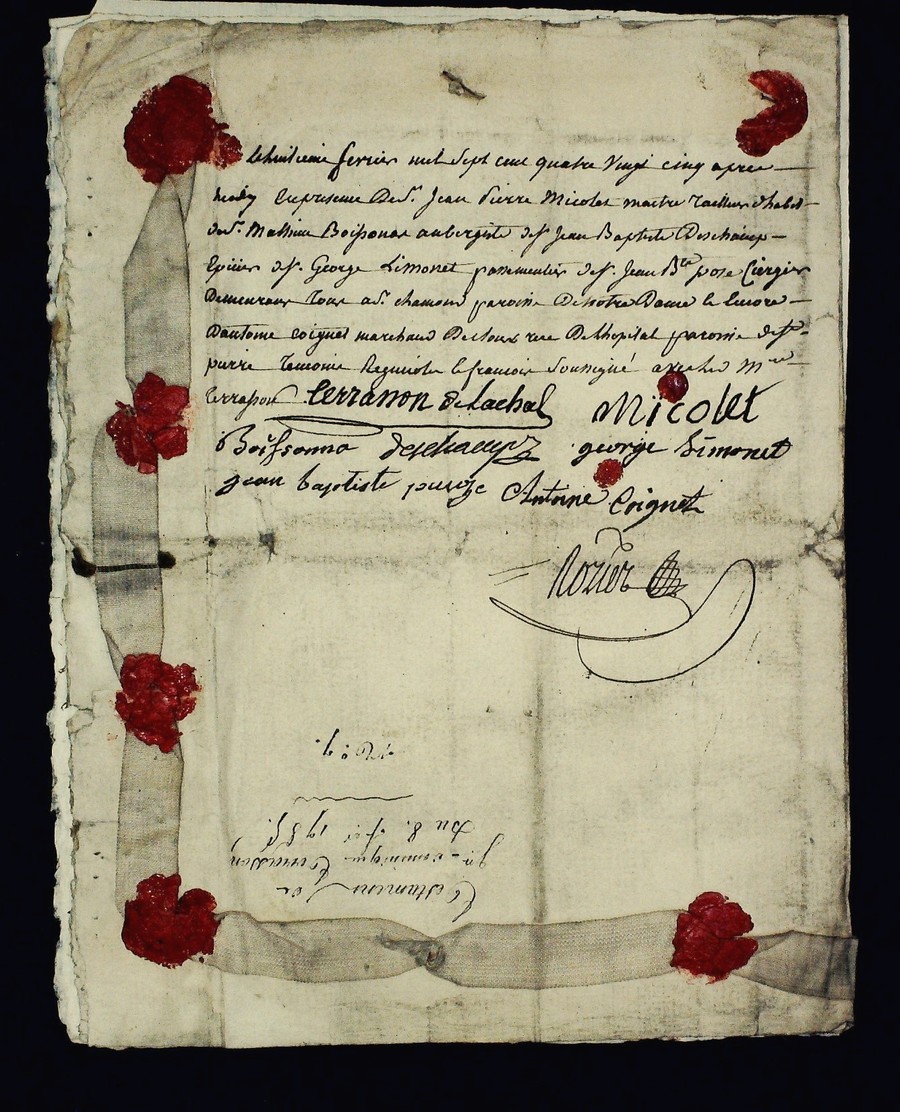 le huitieme fevrier mil sept cent quatre vingt cinq apres
midy en presence de sr. Jean Pierre Micolet maitre tailleur d'habit
de sr. Mathieu Boissonna aubergiste de sr Jean Baptiste Deschamp
Epicier de sr. George Limonet passementier de sr. Jean Bte
Demeurant tous a st. chamond paroisse De notre Dame le encore
Dantoine Coignet marchand De clous rue De l'hopital paroisse de st
pierre temoins Requis le francois soussigné avec led mre
terrasson terrasson de lachal Micolet
Boissonna deschamp george Limonet
jean baptiste Antoine Coignet
Rozier
Testament de
Jn dominique terrasson
du 8. fer 1785.